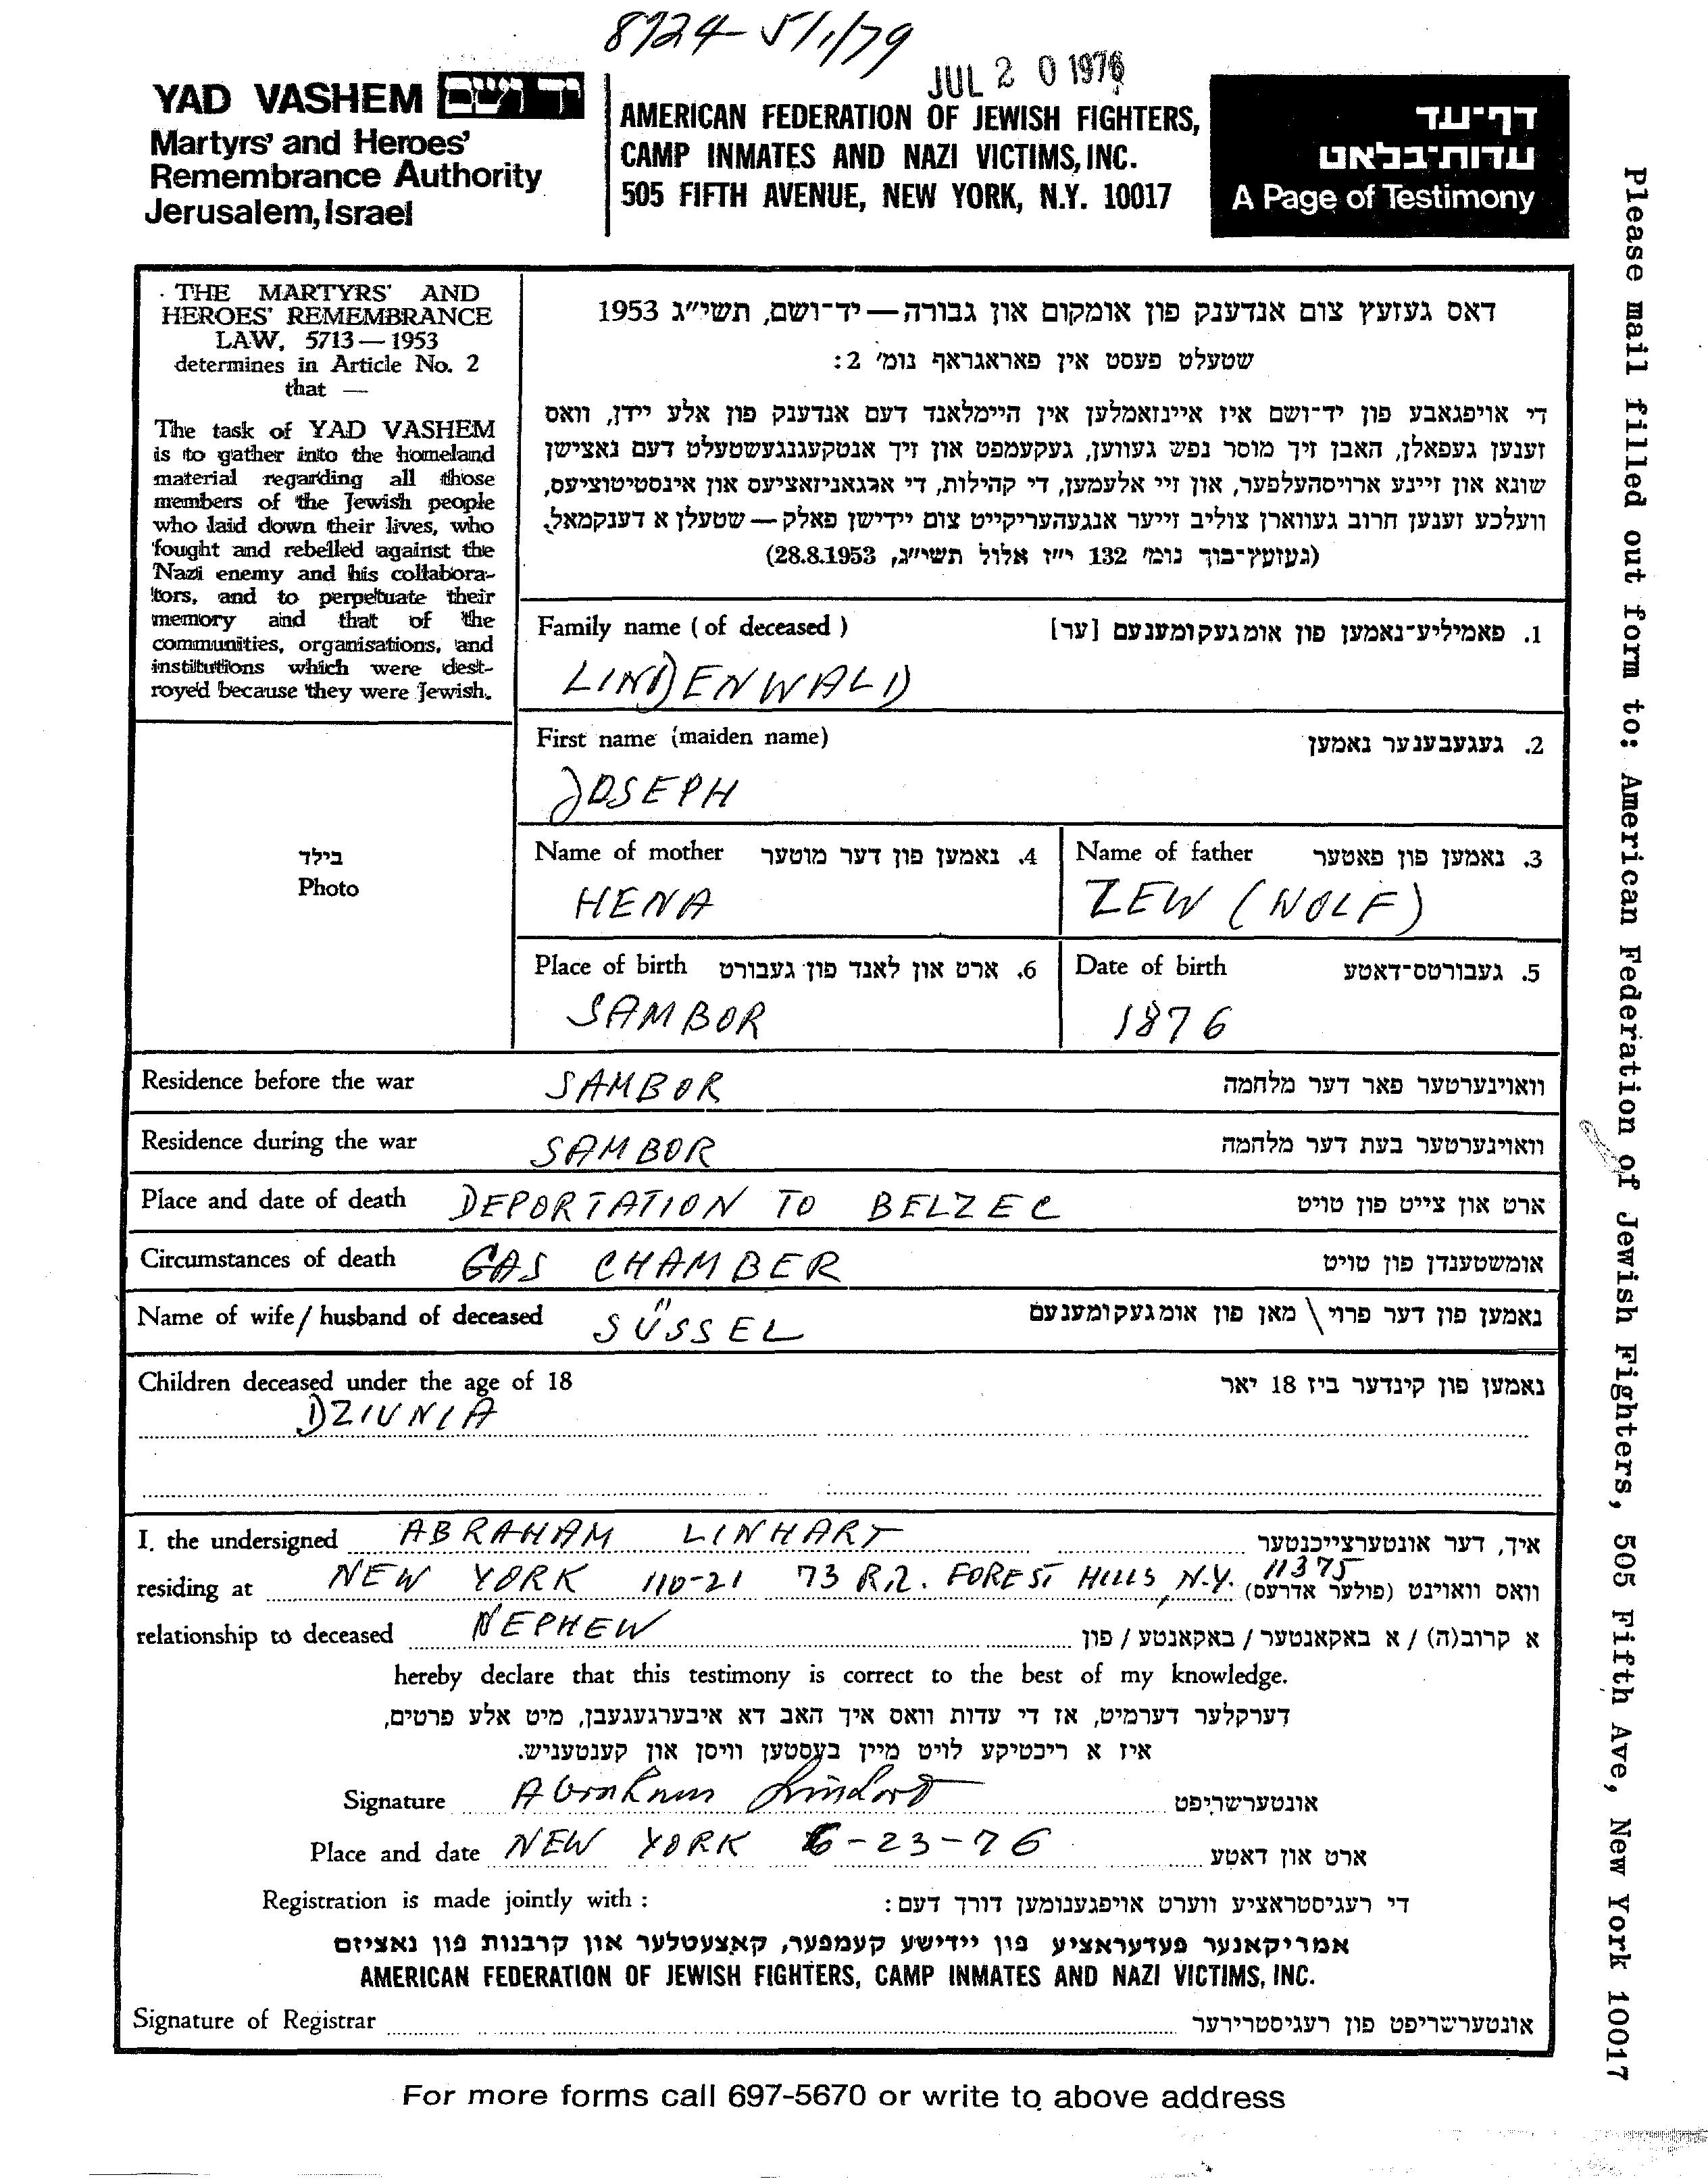 8724- 5/1/79
JUL 20 1976
YAD VASHEM יד ושם
Martyrs' and Heroes'
Remembrance Authority
Jerusalem, Israel
AMERICAN FEDERATION OF JEWISH FIGHTERS,
CAMP INMATES AND NAZI VICTIMS, INC.
505 FIFTH AVENUE, NEW YORK, N.Y. 10017
דף-עד
עדות-בלאט
A Page of Testimony
THE MARTYRS' AND
HEROES' REMEMBRANCE
LAW, 5713 — 1953
determines in Article No. 2
that —
The task of YAD VASHEM
is to gather into the homeland
material regarding all those
members of the Jewish people
who laid down their lives, who
fought and rebelled against the
Nazi enemy and his collabora-
tors, and to perpetuate their
memory and that of the
communities, organisations, and
institutions which were dest-
royed because they were Jewish.
דאס געזעץ צום אנדענק פון אומקום און גבורה — יד-ושם, תשי"ג 1953
שטעלט פעסט אין פאראגראף נומ' 2:
די אויפגאבע פון יד-ושם איז איינזאמלען אין היימלאנד דעם אנדענק פון אלע יידן, וואס
זענען געפאלן, האבן זיך מוסר נפש געווען, געקעמפט און זיך אנטקעגנגעשטעלט דעם נאצישן
שונא און זיינע ארויסהעלפער, און זיי אלעמען, די קהילות, די ארגאניזאציעס און אינסטיטוציעס,
וועלכע זענען חרוב געווארן צוליב זייער אנגעהעריקייט צום יידישן פאלק — שטעלן א דענקמאל.
(געזעץ-בוך נומ' 132 י"ז אלול תשי"ג, 28.8.1953)
Family name (of deceased) 1. פאמיליע-נאמען פון אומגעקומענעם [ער]
LINDENWALD
First name (maiden name) 2. געגעבענער נאמען
JOSEPH
בילד
Photo
Name of mother 4. נאמען פון דער מוטער
HENA
Name of father 3. נאמען פון פאטער
ZEW (WOLF)
Place of birth 6. ארט און לאנד פון געבורט
SAMBOR
Date of birth 5. געבורטס-דאטע
1876
Residence before the war SAMBOR וואוינערטער פאר דער מלחמה
Residence during the war SAMBOR וואוינערטער בעת דער מלחמה
Place and date of death DEPORTATION TO BELZEC ארט און צייט פון טויט
Circumstances of death GAS CHAMBER אומשטענדן פון טויט
Name of wife / husband of deceased SÜSSEL נאמען פון דער פרוי \ מאן פון אומגעקומענעם
Children deceased under the age of 18 נאמען פון קינדער ביז 18 יאר
DZIUNIA
I, the undersigned ABRAHAM LINHART איך, דער אונטערצייכנטער
residing at NEW YORK 110-21 73 Rd. FOREST HILLS, N.Y. 11375 וואס וואוינט (פולער אדרעס)
relationship to deceased NEPHEW א קרוב(ה) / א באקאנטער / באקאנטע / פון
hereby declare that this testimony is correct to the best of my knowledge.
דערקלער דערמיט, אז די עדות וואס איך האב דא איבערגעגעבן, מיט אלע פרטים,
איז א ריכטיקע לויט מיין בעסטען וויסן און קענטעניש.
Signature Abraham Linhart אונטערשריפט
Place and date NEW YORK 6-23-76 ארט און דאטע
Registration is made jointly with : די רעגיסטראציע ווערט אויפגענומען דורך דעם:
אמריקאנער פעדעראציע פון יידישע קעמפער, קאצעטלער און קרבנות פון נאציזם
AMERICAN FEDERATION OF JEWISH FIGHTERS, CAMP INMATES AND NAZI VICTIMS, INC.
Signature of Registrar אונטערשריפט פון רעגיסטרירער
For more forms call 697-5670 or write to above address
Please mail filled out form to: American Federation of Jewish Fighters, 505 Fifth Ave, New York 10017